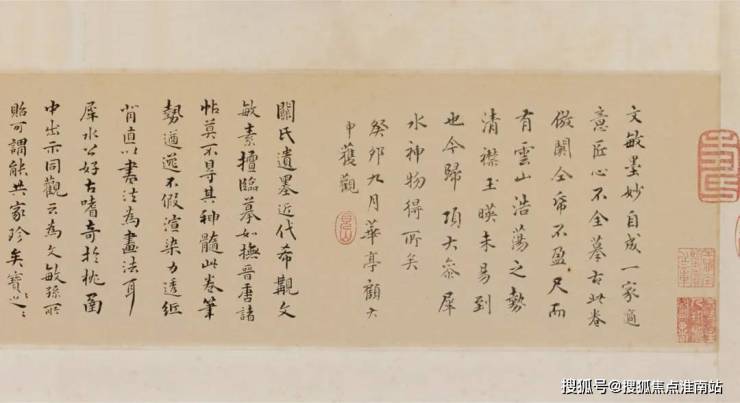 文敏墨妙自成一家適
意匠心不全摹古此卷
倣關仝希不盈尺而
有雲山浩蕩之勢
清襟玉暎未易到
也今歸項大參犀
水神物得所矣
癸卯九月華亭顧大
申獲觀
關氏遺墨近代希覯文
敏素擅臨摹如撫晉唐諸
帖莫不具其神髓此卷筆
勢遒逸不假渲染力透紙
背直以書法為畫法耳
犀水公好古嗜奇於桃園
中出示同觀云為文敏孫所
貽可謂能共家珍矣寶之
搜狐号@搜狐焦点淮南站